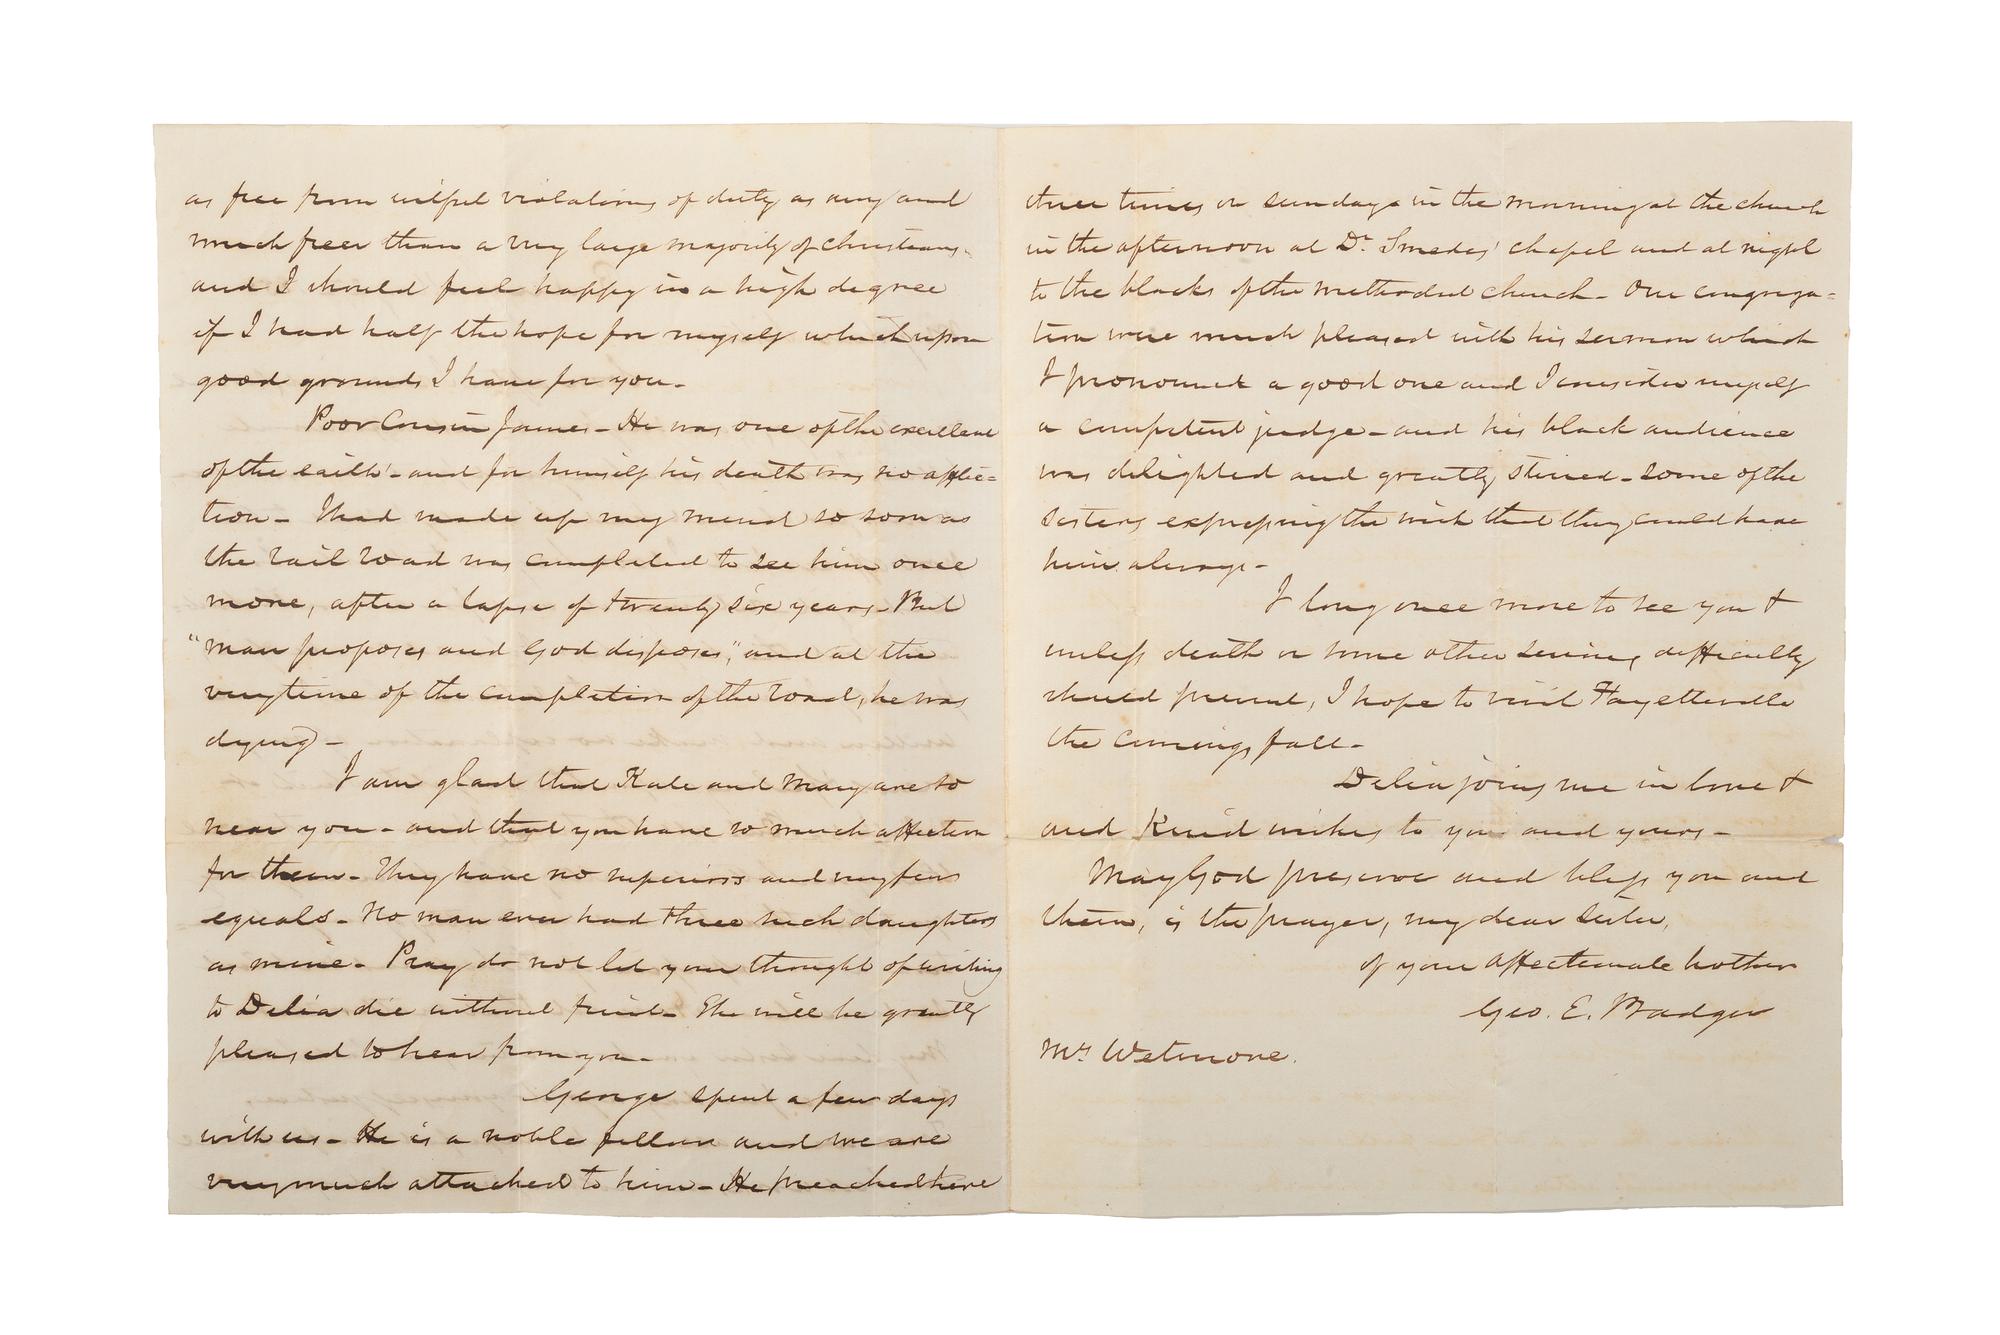 as free from wilful violations of duty as any and
much freer than a very large majority of christians.
and I should feel happy in a high degree
if I had half the hope for myself which upon
good grounds I have for you.
Poor Cousin James - He was one of the excellent
of the earth' - and for himself his death was no afflic=
tion - I had made up my mind so soon as
the rail road was completed to see him once
more, after a lapse of twenty six years - But
"man proposes and God disposes", and at the
very time of the completion of the road, he was
dying -
I am glad that Kate and Mary are so
near you - and that you have so much affection
for them - They have no superiors and very few
equals - No man ever had three such daughters
as mine - Pray do not let your thought of writing
to Delia die without fruit - She will be greatly
pleased to hear from you -
George spent a few days
with us - He is a noble fellow and we are
very much attached to him - He preached here
three times on sundays in the morning at the church
in the afternoon at Dr. Smedes' chapel and at night
to the blacks of the methodist church - Our congrega=
tion were much pleased with his sermon which
I pronounced a good one and I consider myself
a competent judge - and his black audience
was delighted and greatly stirred - some of the
sisters expressing the wish that they could have
him always -
I long once more to see you &
unless death or some other serious difficulty
should prevent, I hope to visit Fayetteville
the coming fall -
Delia joins me in love &
and kind wishes to you and yours -
May God preserve and bless you and
them, is the prayer, my dear sister,
of your affectionate brother
Geo. E. Badger
Mrs Wetmore.